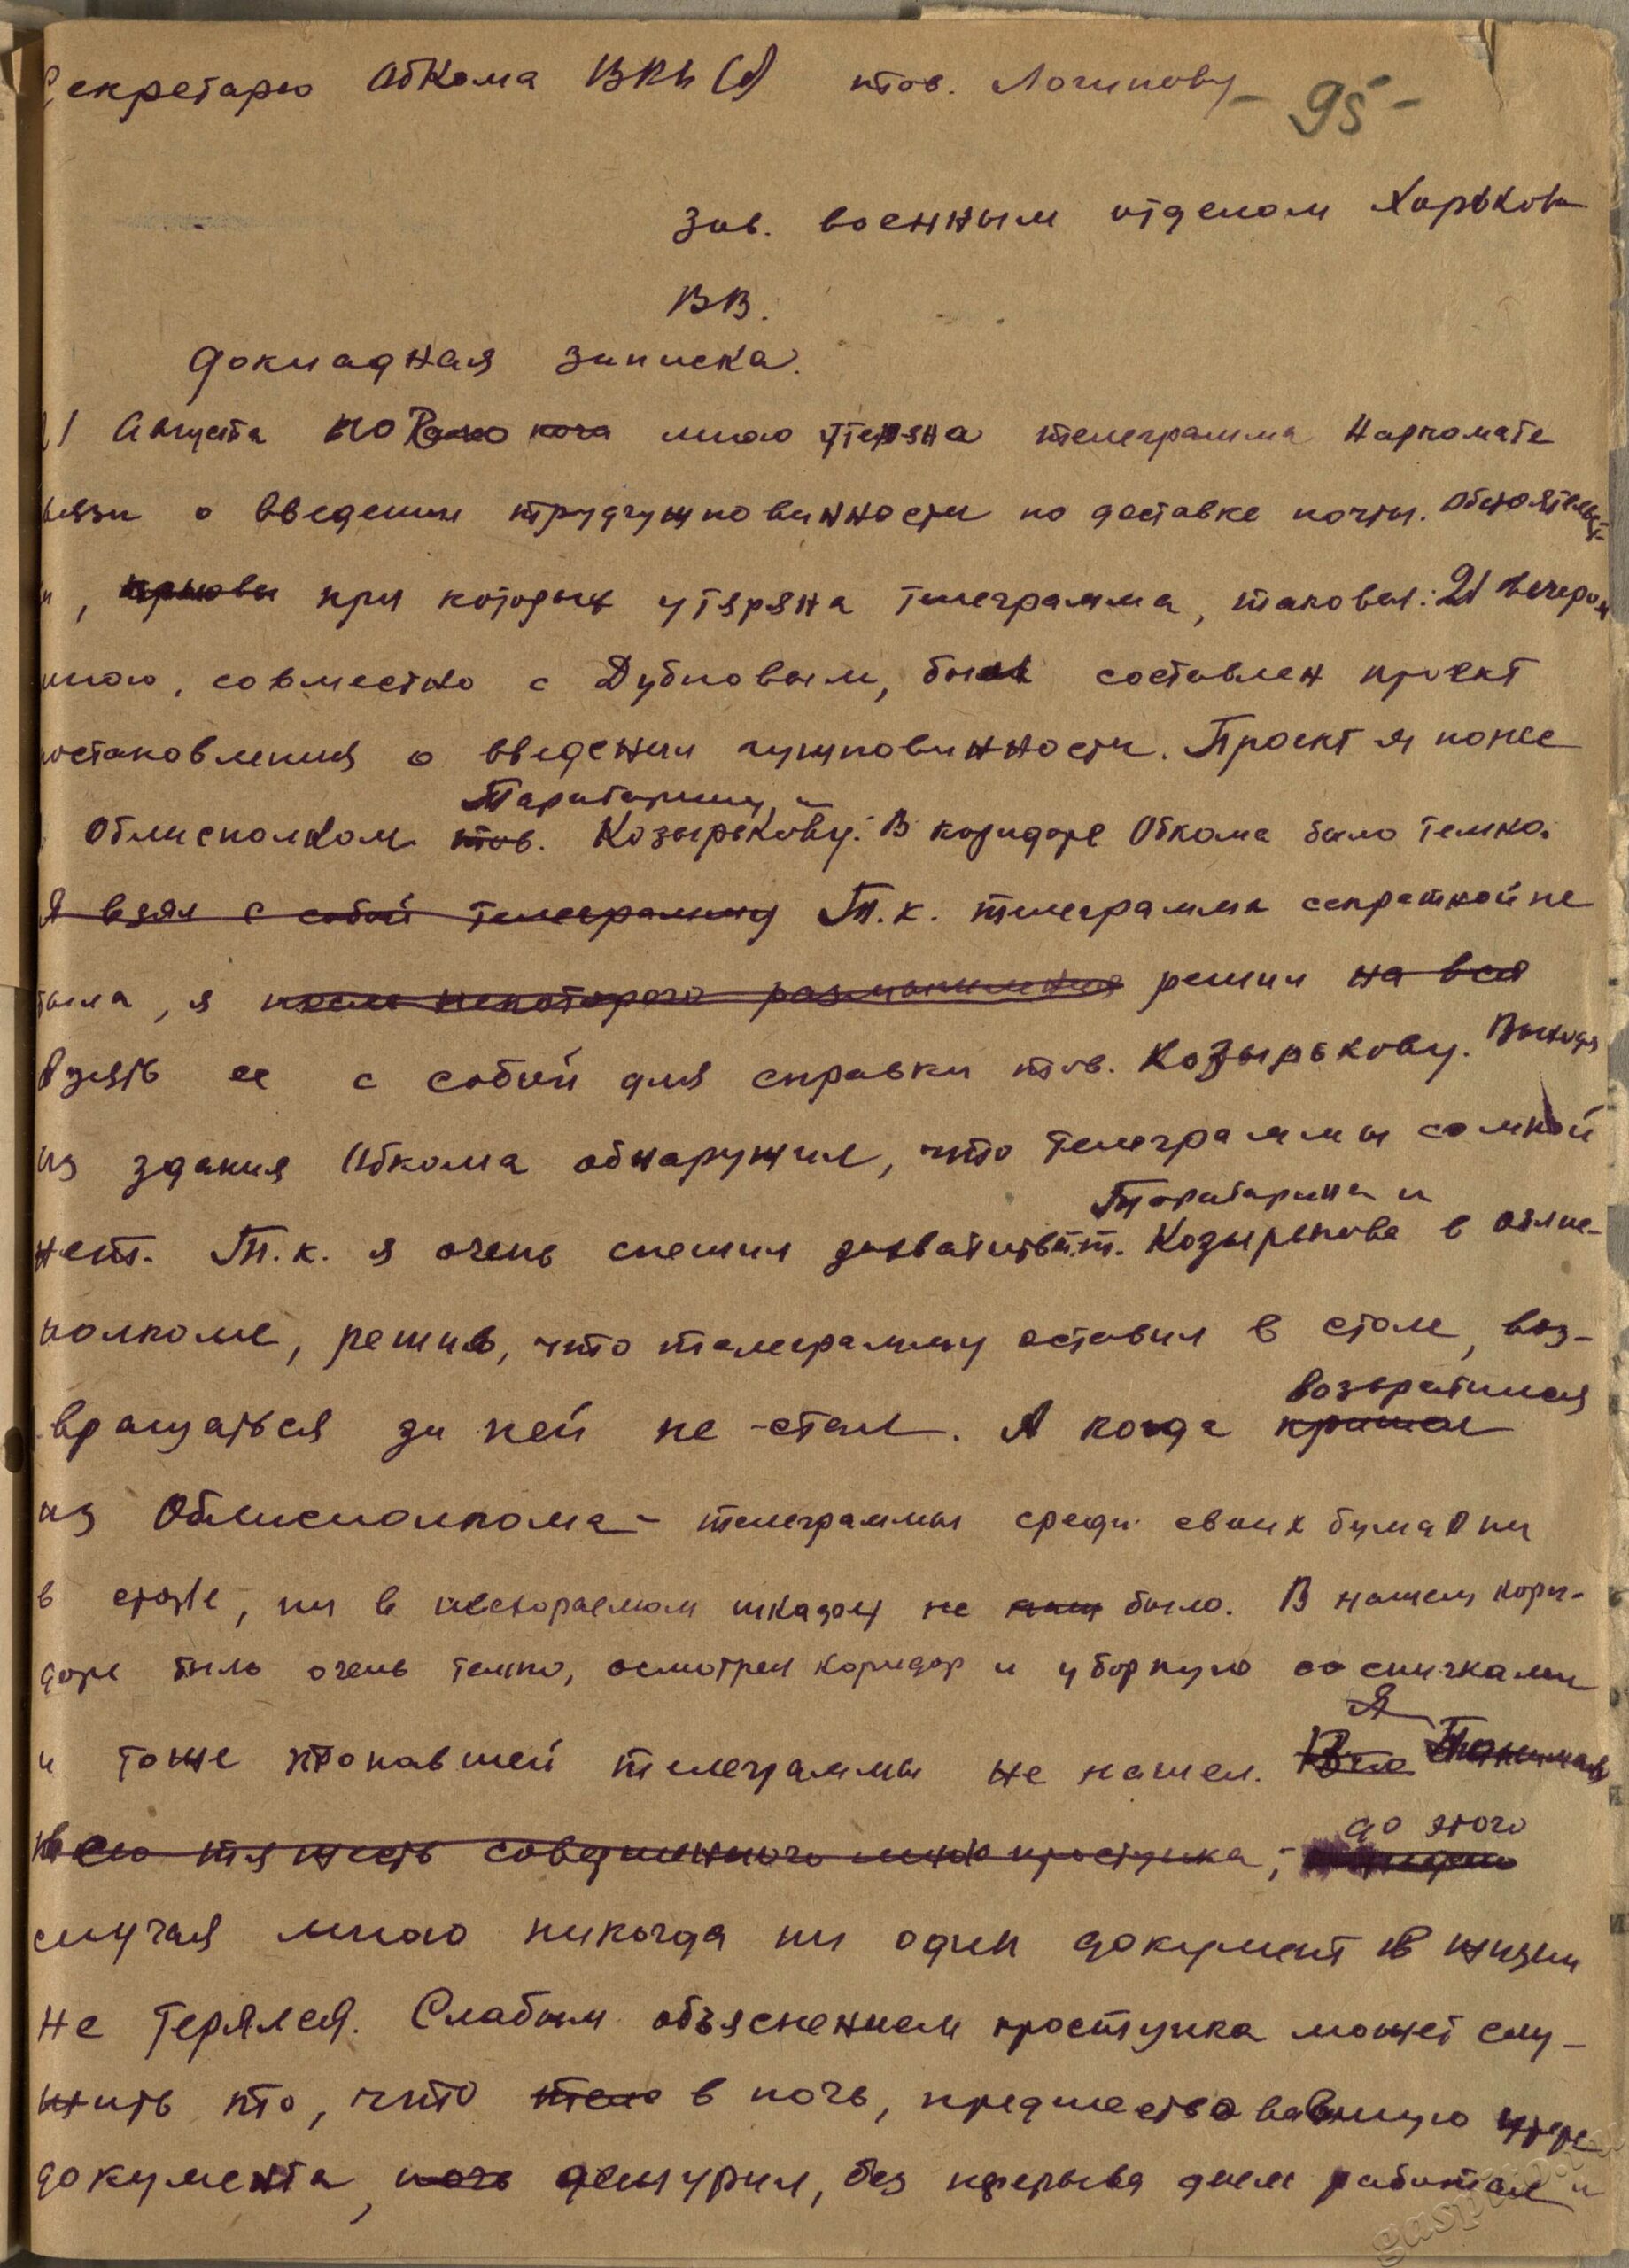 Секретарю Обкома ВКП(б) тов. Логинову
- 95 -
Зав. военным отделом Харькова
ВВ.
Докладная записка.
21 Августа мною утеряна телеграмма Наркомате
связи о введении трудгужповинности по доставке почты. Обстоятельст-
, при которых утеряна телеграмма, таковы: 21 вечером
мною, совместно с Дубковым, был составлен проект
постановления о введении гужповинности. Проект я понес
Таратарину и
Облисполком тов. Козырькову. В коридоре Обкома было темно.
Я взял с собой телеграмму Т.к. телеграмма секретной не
была, я после некоторого размышления решил на вся
взять ее с собой для справки тов. Козырькову. Выходя
из здания Обкома обнаружил, что телеграммы со мной
Таратарина и
нет. Т.к. я очень спешил захватить т.т. Козырькова в облис-
полкоме, решив, что телеграмму оставил в столе, воз-
возвратился
вращаться за ней не стал. А когда пришел
из Облисполкома - телеграммы среди своих бумаг ни
в столе, ни в несгораемом шкафу не было. В нашем кори-
доре было очень темно, осмотрел коридор и уборную со спичками
Я
и тоже пропавшей телеграммы не нашел. Понимаю
до этого
всю тяжесть совершенного мною проступка,
случая мною никогда ни один документ в жизни
не терялся. Слабым объяснением проступка может слу-
жить то, что в ночь, предшествовавшую утере
документа, ночь дежурил, без перерыва днем работал и
gaspiko.ru